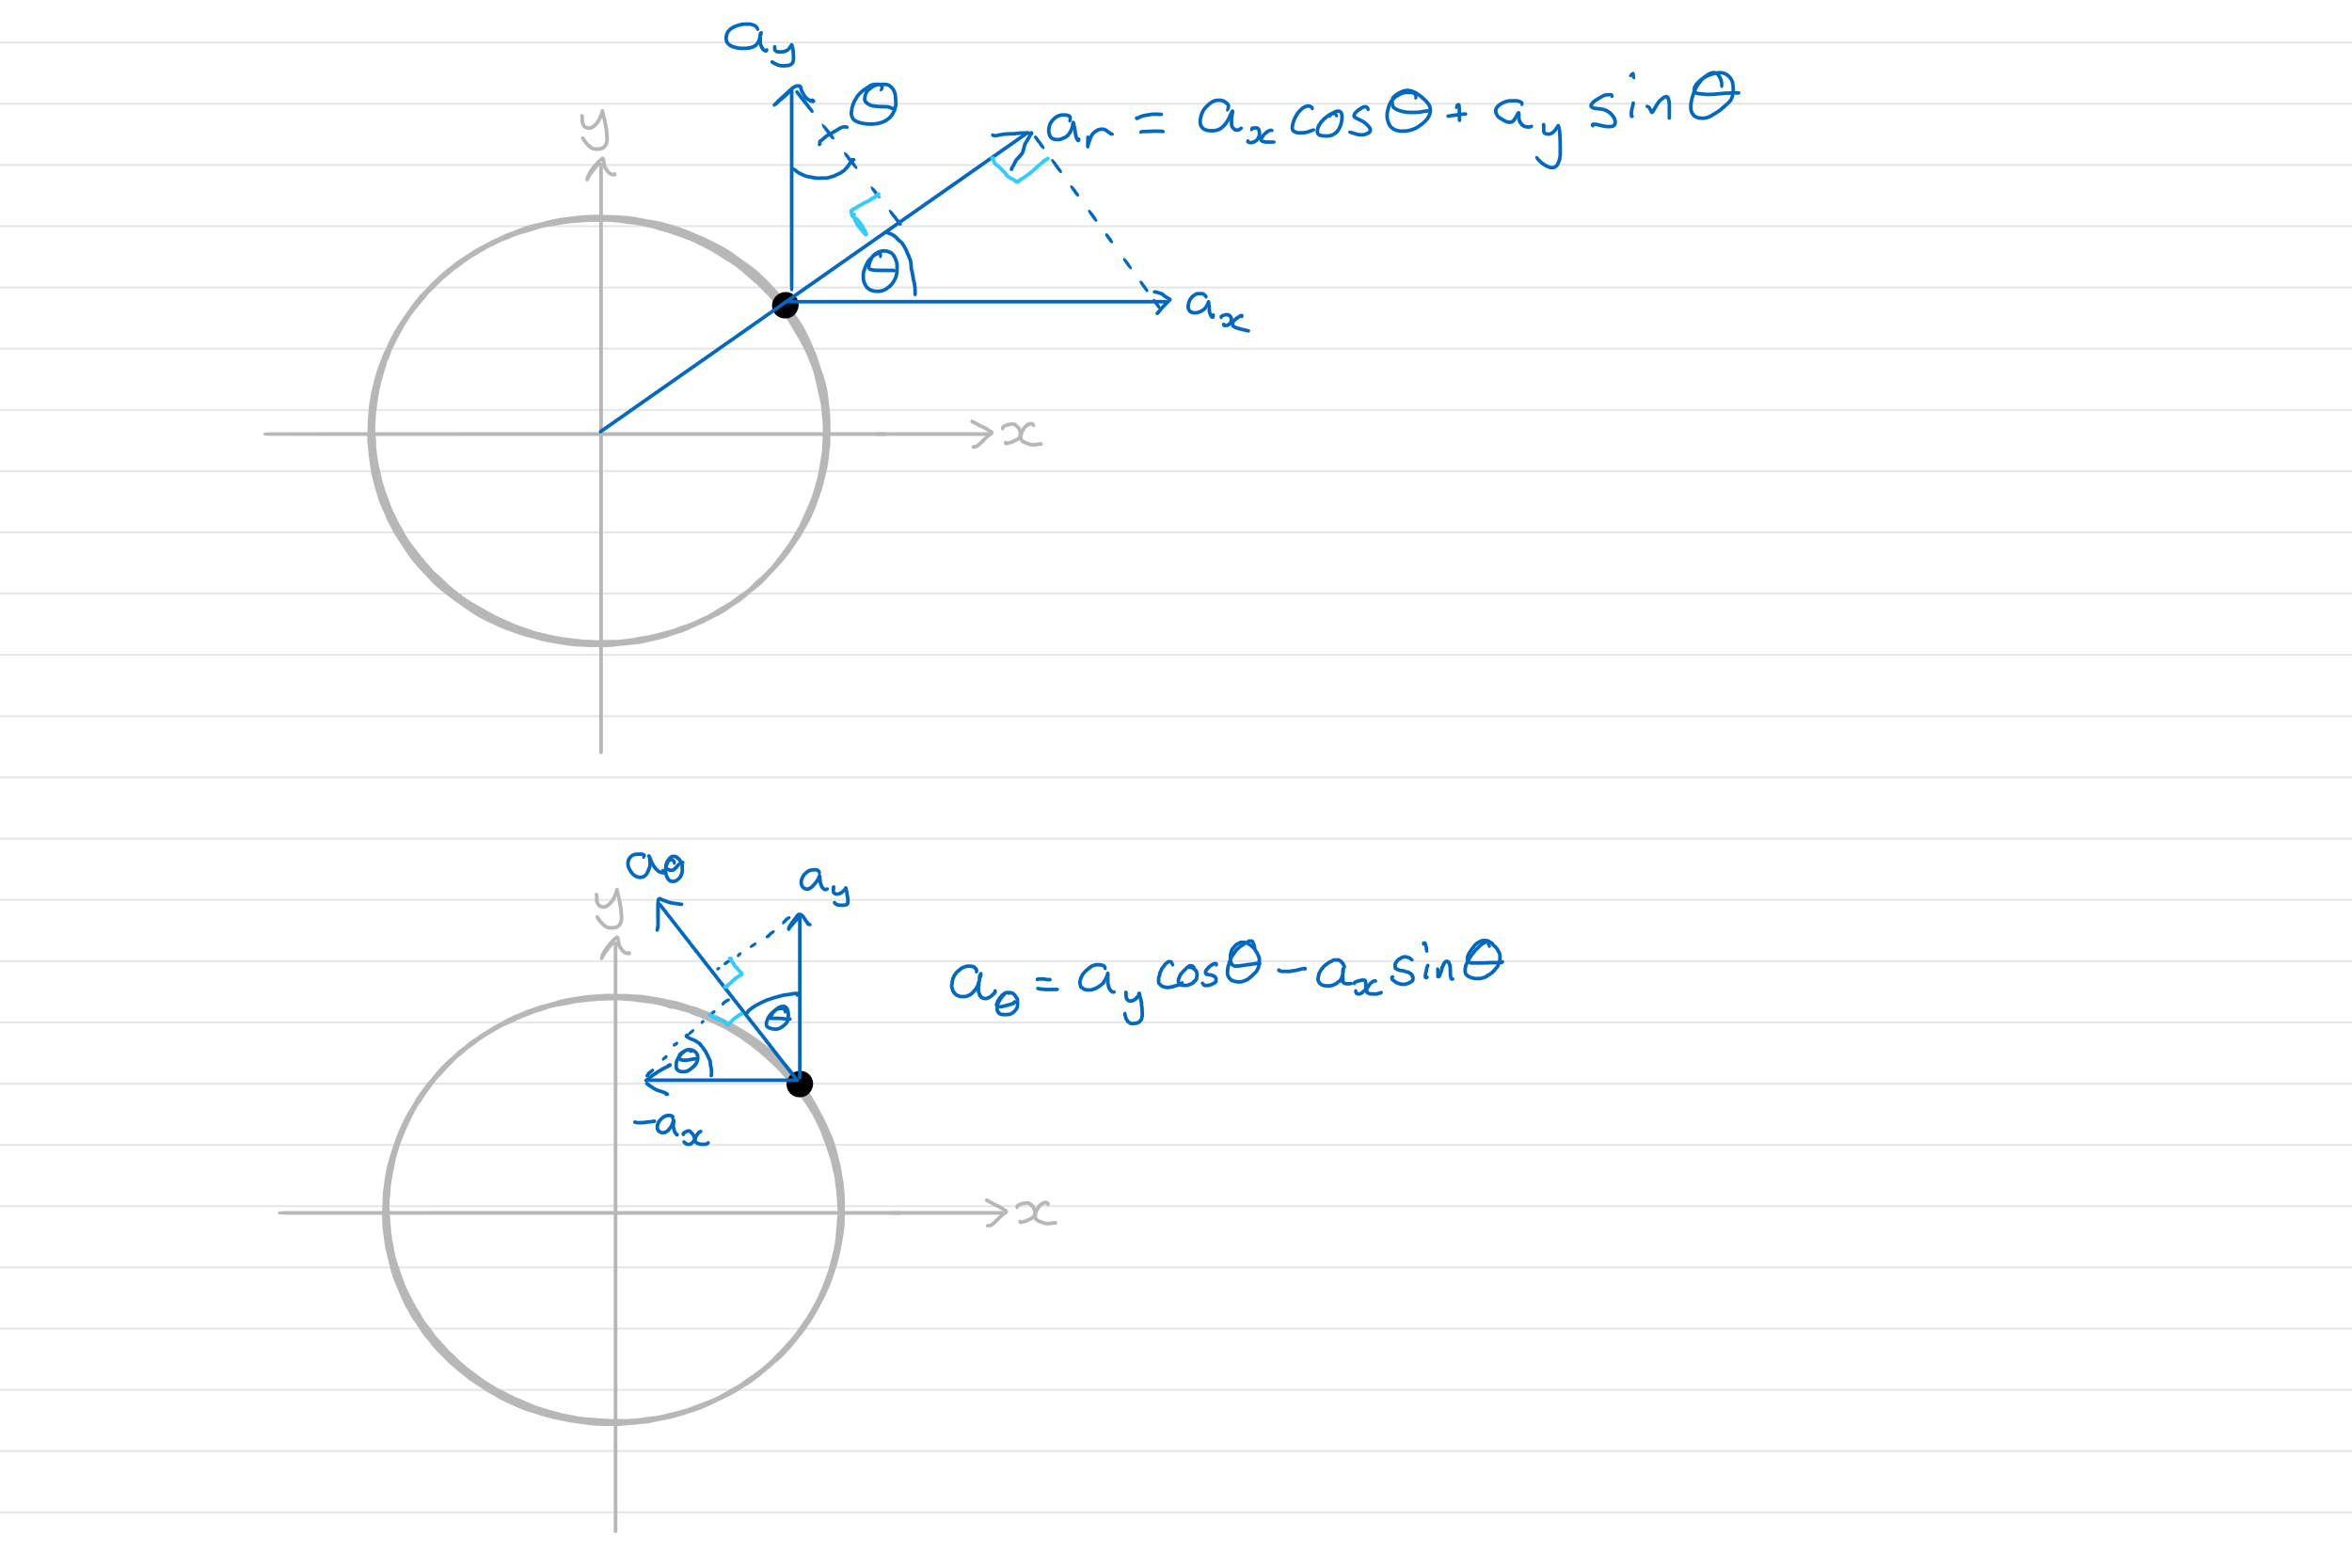 aᵧ
θ
y
aᵣ = aₓcosθ + aᵧ sinθ
θ
aₓ
x
a_θ
aᵧ
y
a_θ = aᵧcosθ - aₓsinθ
θ
θ
-aₓ
x